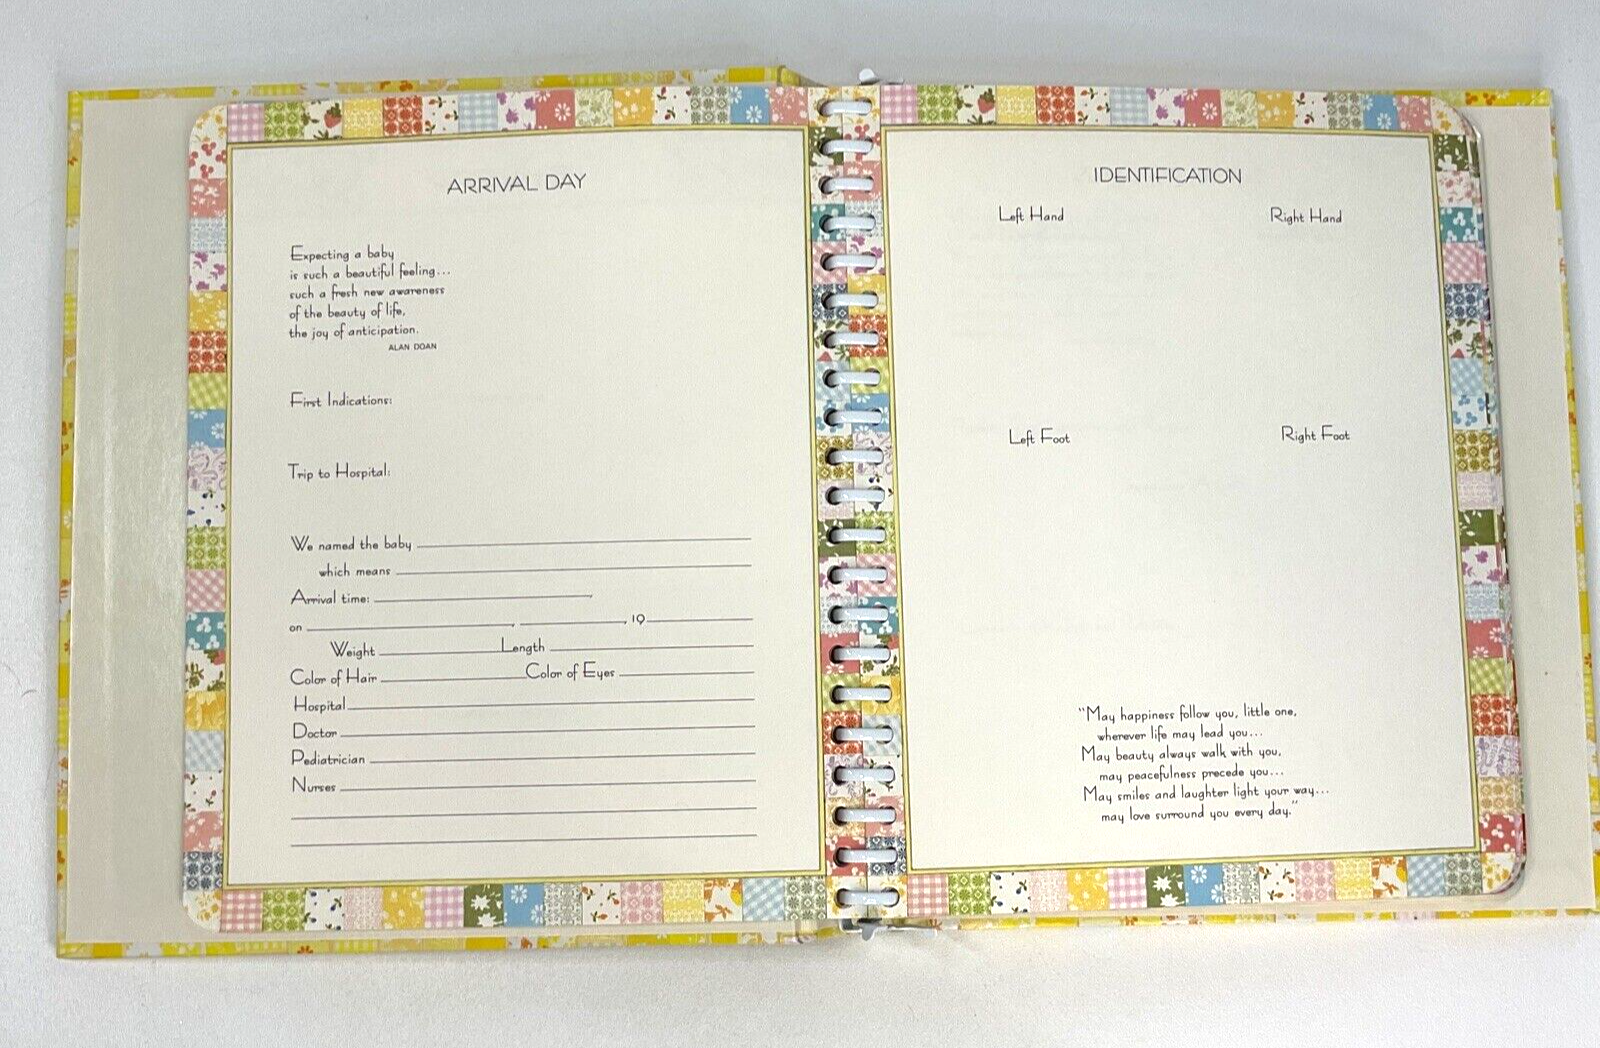 ARRIVAL DAY
Expecting a baby
is such a beautiful feeling...
such a fresh new awareness
of the beauty of life,
the joy of anticipation.
ALAN DOAN
First Indications:
Trip to Hospital:
We named the baby
which means
Arrival time:
on , , 19
Weight Length
Color of Hair Color of Eyes
Hospital
Doctor
Pediatrician
Nurses
IDENTIFICATION
Left Hand Right Hand
Left Foot Right Foot
"May happiness follow you, little one,
wherever life may lead you...
May beauty always walk with you,
may peacefulness precede you...
May smiles and laughter light your way...
may love surround you every day."